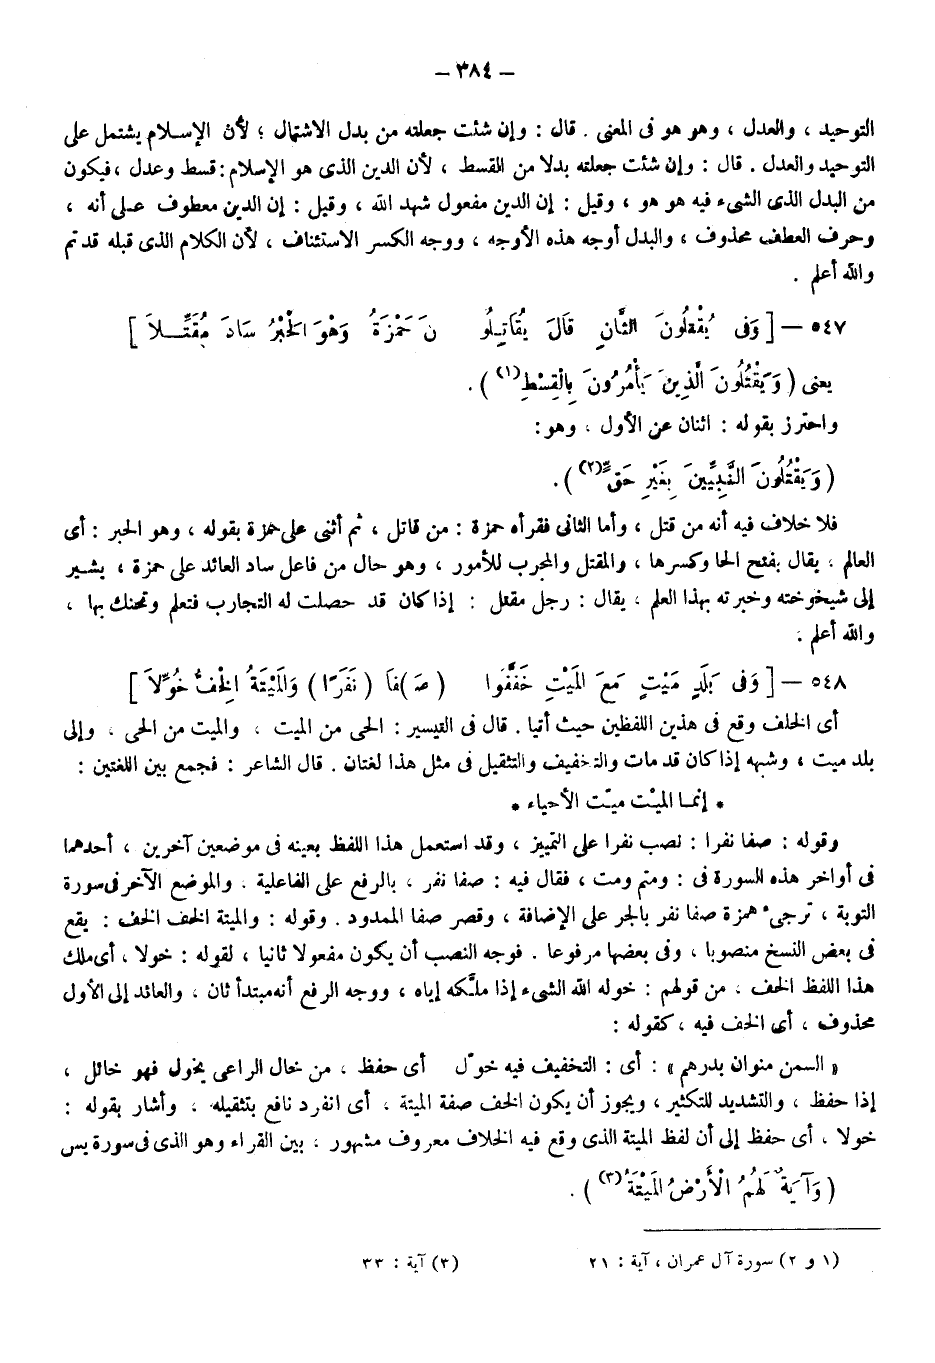 — ٣٨٤ —
التوحيد ، والعدل ، وهو هو فى المعنى . قال : وإن شئت جعلته من بدل الاشتمال ؛ لأن الإسلام يشتمل على
التوحيد والعدل . قال : وإن شئت جعلته بدلا من القسط ، لأن الدين الذى هو الإسلام : قسط وعدل ، فيكون
من البدل الذى الشىء فيه هو هو ، وقيل : إن الدين مفعول شهد الله ، وقيل : إن الدين معطوف على أنه ،
وحرف العطف محذوف ، والبدل أوجه هذه الأوجه ، ووجه الكسر الاستئناف ، لأن الكلام الذى قبله قد تم
والله أعلم .
٥٤٧ — [ وَفى يُقْتلُونَ الثَّانِ قَالَ يُقَاتِلُو نَ حَمْزَةُ وَهْوَ الحَبْرُ سَادَ مُقَتَّلاَ ]
يعنى ( وَيَقْتُلُونَ الَّذِينَ يَأْمُرُونَ بِالْقِسْطِ(١) ) .
واحترز بقوله : اثنان عن الأول ، وهو :
( وَيَقْتُلُونَ النَّبِيِّينَ بِغَيْرِ حَقٍّ(٢) ) .
فلا خلاف فيه أنه من قتل ، وأما الثانى فقرأه حمزة : من قاتل ، ثم أثنى على حمزة بقوله ، وهو الحبر : أى
العالم ، يقال بفتح الحا وكسرها ، والمقتل والمجرب للأمور ، وهو حال من فاعل ساد العائد على حمزة ، يشير
إلى شيخوخته وخبرته بهذا العلم ، يقال : رجل مقتل : إذا كان قد حصلت له التجارب فتعلم وتحنك بها ،
والله أعلم .
٥٤٨ — [ وَفى بَلَدٍ مَيْتٍ مَعَ المَيْتِ خَفَّفُوا ( صَ )فَا ( نَفَرًا ) وَالمَيْتَةُ الخِفُّ خُوِّلاَ ]
أى الخلف وقع فى هذين اللفظين حيث أتيا . قال فى التيسير : الحى من الميت ، والميت من الحى ، وإلى
بلد ميت ، وشبهه إذا كان قد مات والتخفيف والتثقيل فى مثل هذا لغتان . قال الشاعر : فجمع بين اللغتين :
* إنما الميْت ميّت الأحياء *
وقوله : صفا نفرا : نصب نفرا على التمييز ، وقد استعمل هذا اللفظ بعينه فى موضعين آخرين ، أحدهما
فى أواخر هذه السورة فى : ومتم ومت ، فقال فيه : صفا نفر ، بالرفع على الفاعلية . والموضع الآخر فى سورة
التوبة ، ترجىء همزة صفا نفر بالجر على الإضافة ، وقصر صفا الممدود . وقوله : والميتة الخف الخف : يقع
فى بعض النسخ منصوبا ، وفى بعضها مرفوعا . فوجه النصب أن يكون مفعولا ثانيا ، لقوله : خولا ، أى ملك
هذا اللفظ الخف ، من قولهم : خوله الله الشىء إذا ملَّكه إياه ، ووجه الرفع أنه مبتدأ ثان ، والعائد إلى الأول
محذوف ، أى الخف فيه ، كقوله :
« السمن منوان بدرهم » : أى : التخفيف فيه خوّل أى حفظ ، من خال الراعى يخول فهو خائل ،
إذا حفظ ، والتشديد للتكثير ، ويجوز أن يكون الخف صفة الميتة ، أى انفرد نافع بتثقيله . وأشار بقوله :
خولا ، أى حفظ إلى أن لفظ الميتة الذى وقع فيه الخلاف معروف مشهور ، بين القراء وهو الذى فى سورة يس
( وَآيَةٌ لَهُمُ الْأَرْضُ المَيْتَةُ(٣) ) .
(١ و ٢) سورة آل عمران ، آية : ٢١ (٣) آية : ٣٣